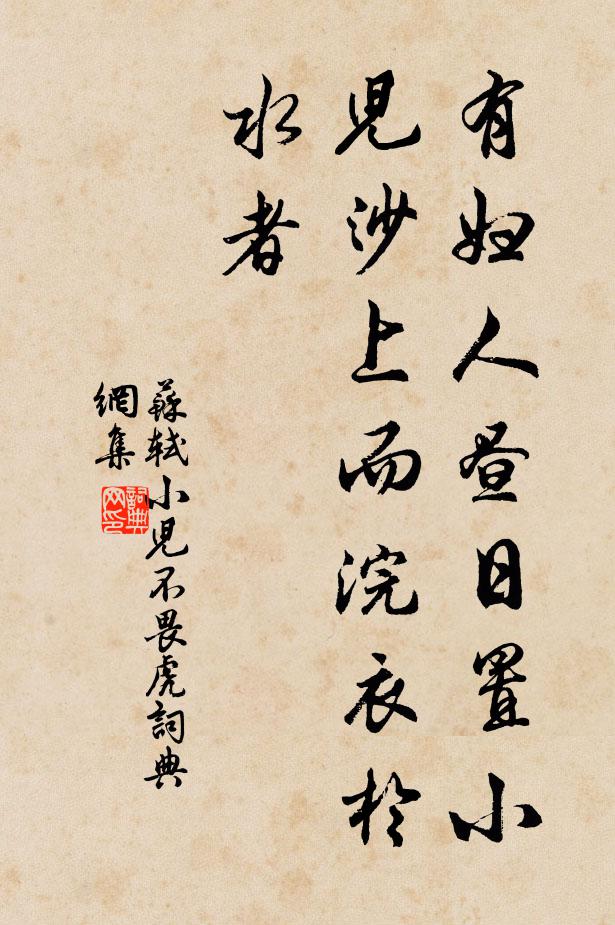 有妇人昼日置小
兒沙上而浣衣於
水者
蘇軾小兒不畏虎詞典
網集
詞典网印